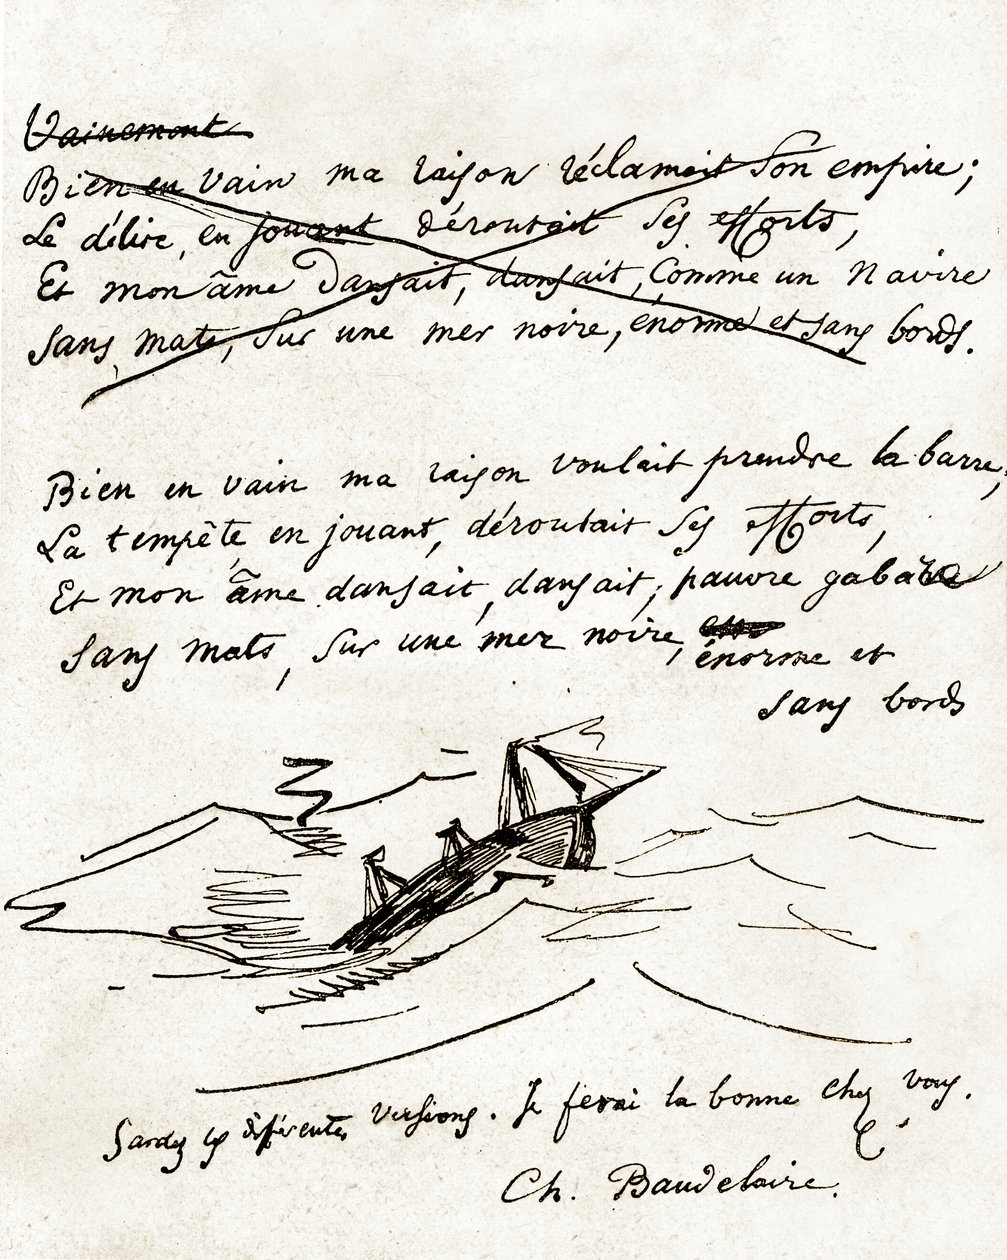 Vainement
Bien en vain ma raison réclamait son empire;
Le délire, en jouant déroutait ses efforts,
Et mon âme dansait, dansait, comme un navire
Sans mats, sur une mer noire, énorme et sans bords.
Bien en vain ma raison voulait prendre la barre;
La tempête en jouant, déroutait ses efforts,
Et mon âme dansait, dansait; pauvre gabare
Sans mats, sur une mer noire,
énorme et
sans bords
Gardez les différentes versions. Je ferai la bonne chez vous.
Ch. Baudelaire.